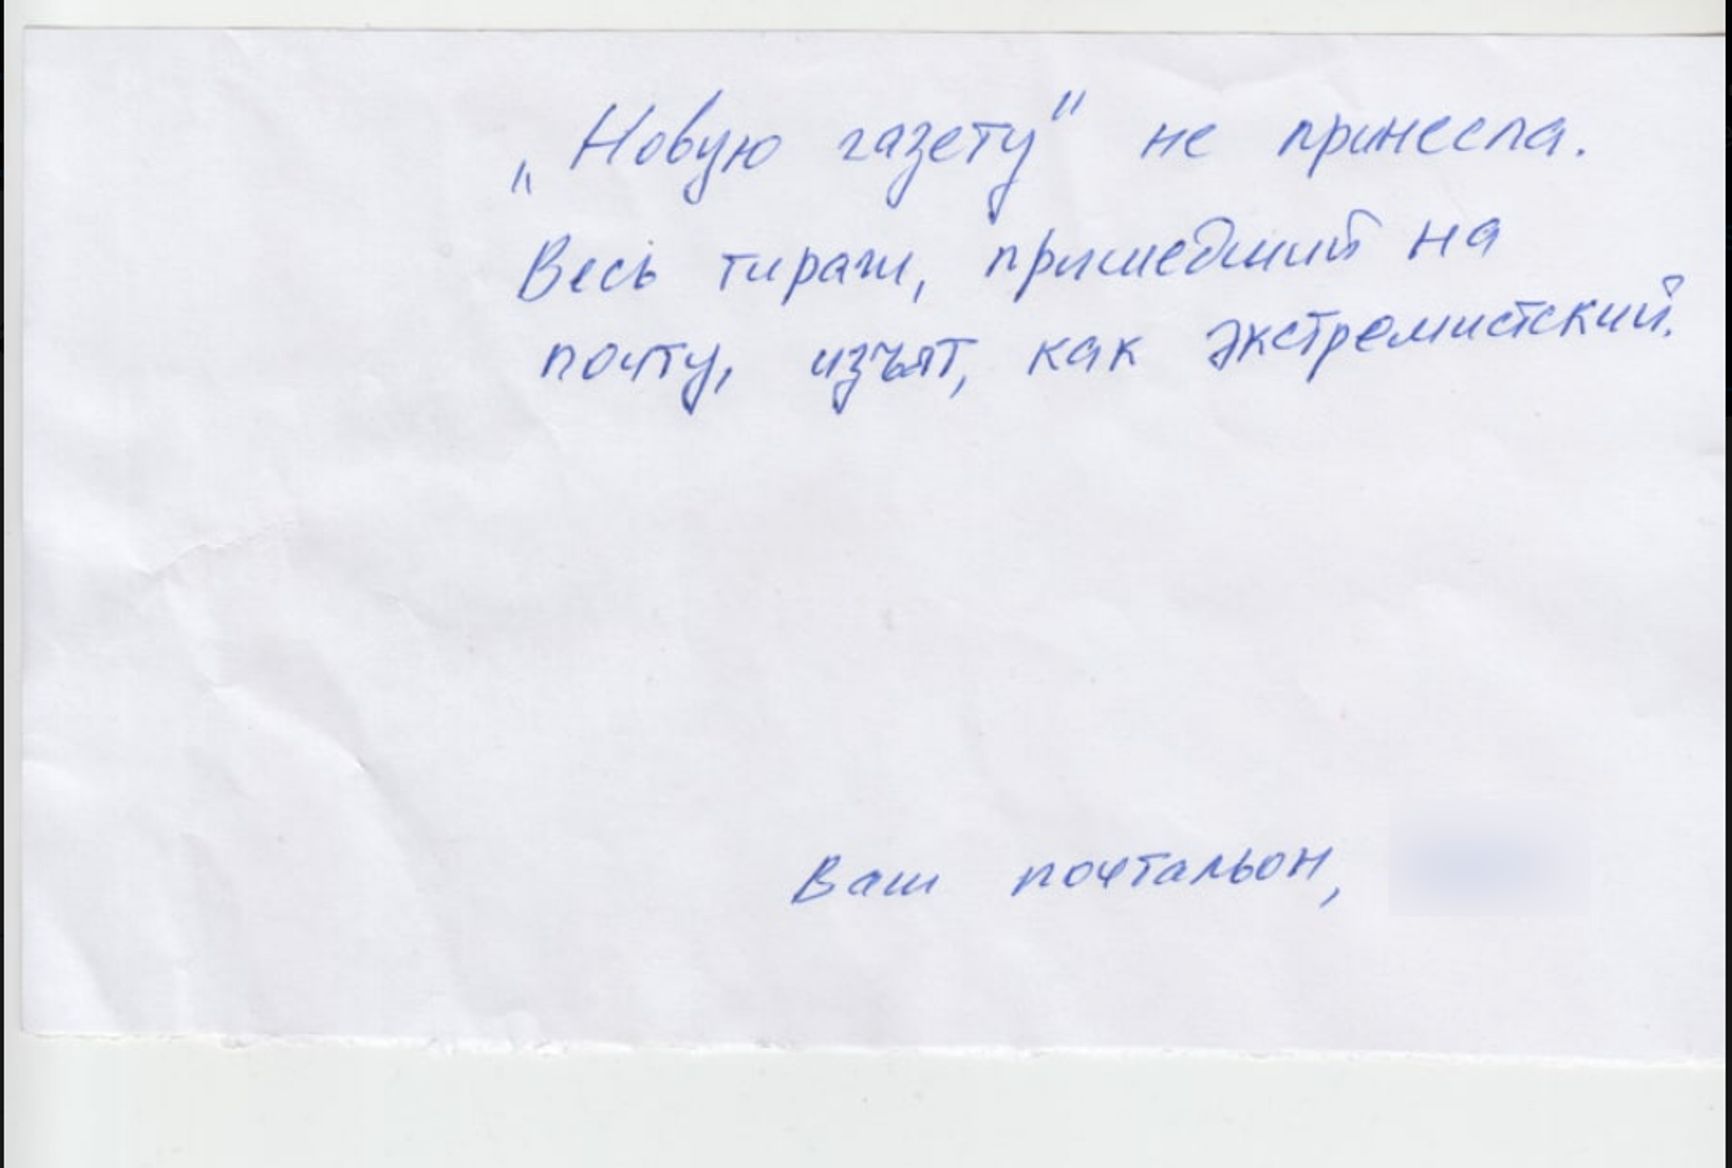 „Новую газету“ не принесла.
Весь тираж, пришедший на
почту, изъят, как экстремистский.
Ваш почтальон,